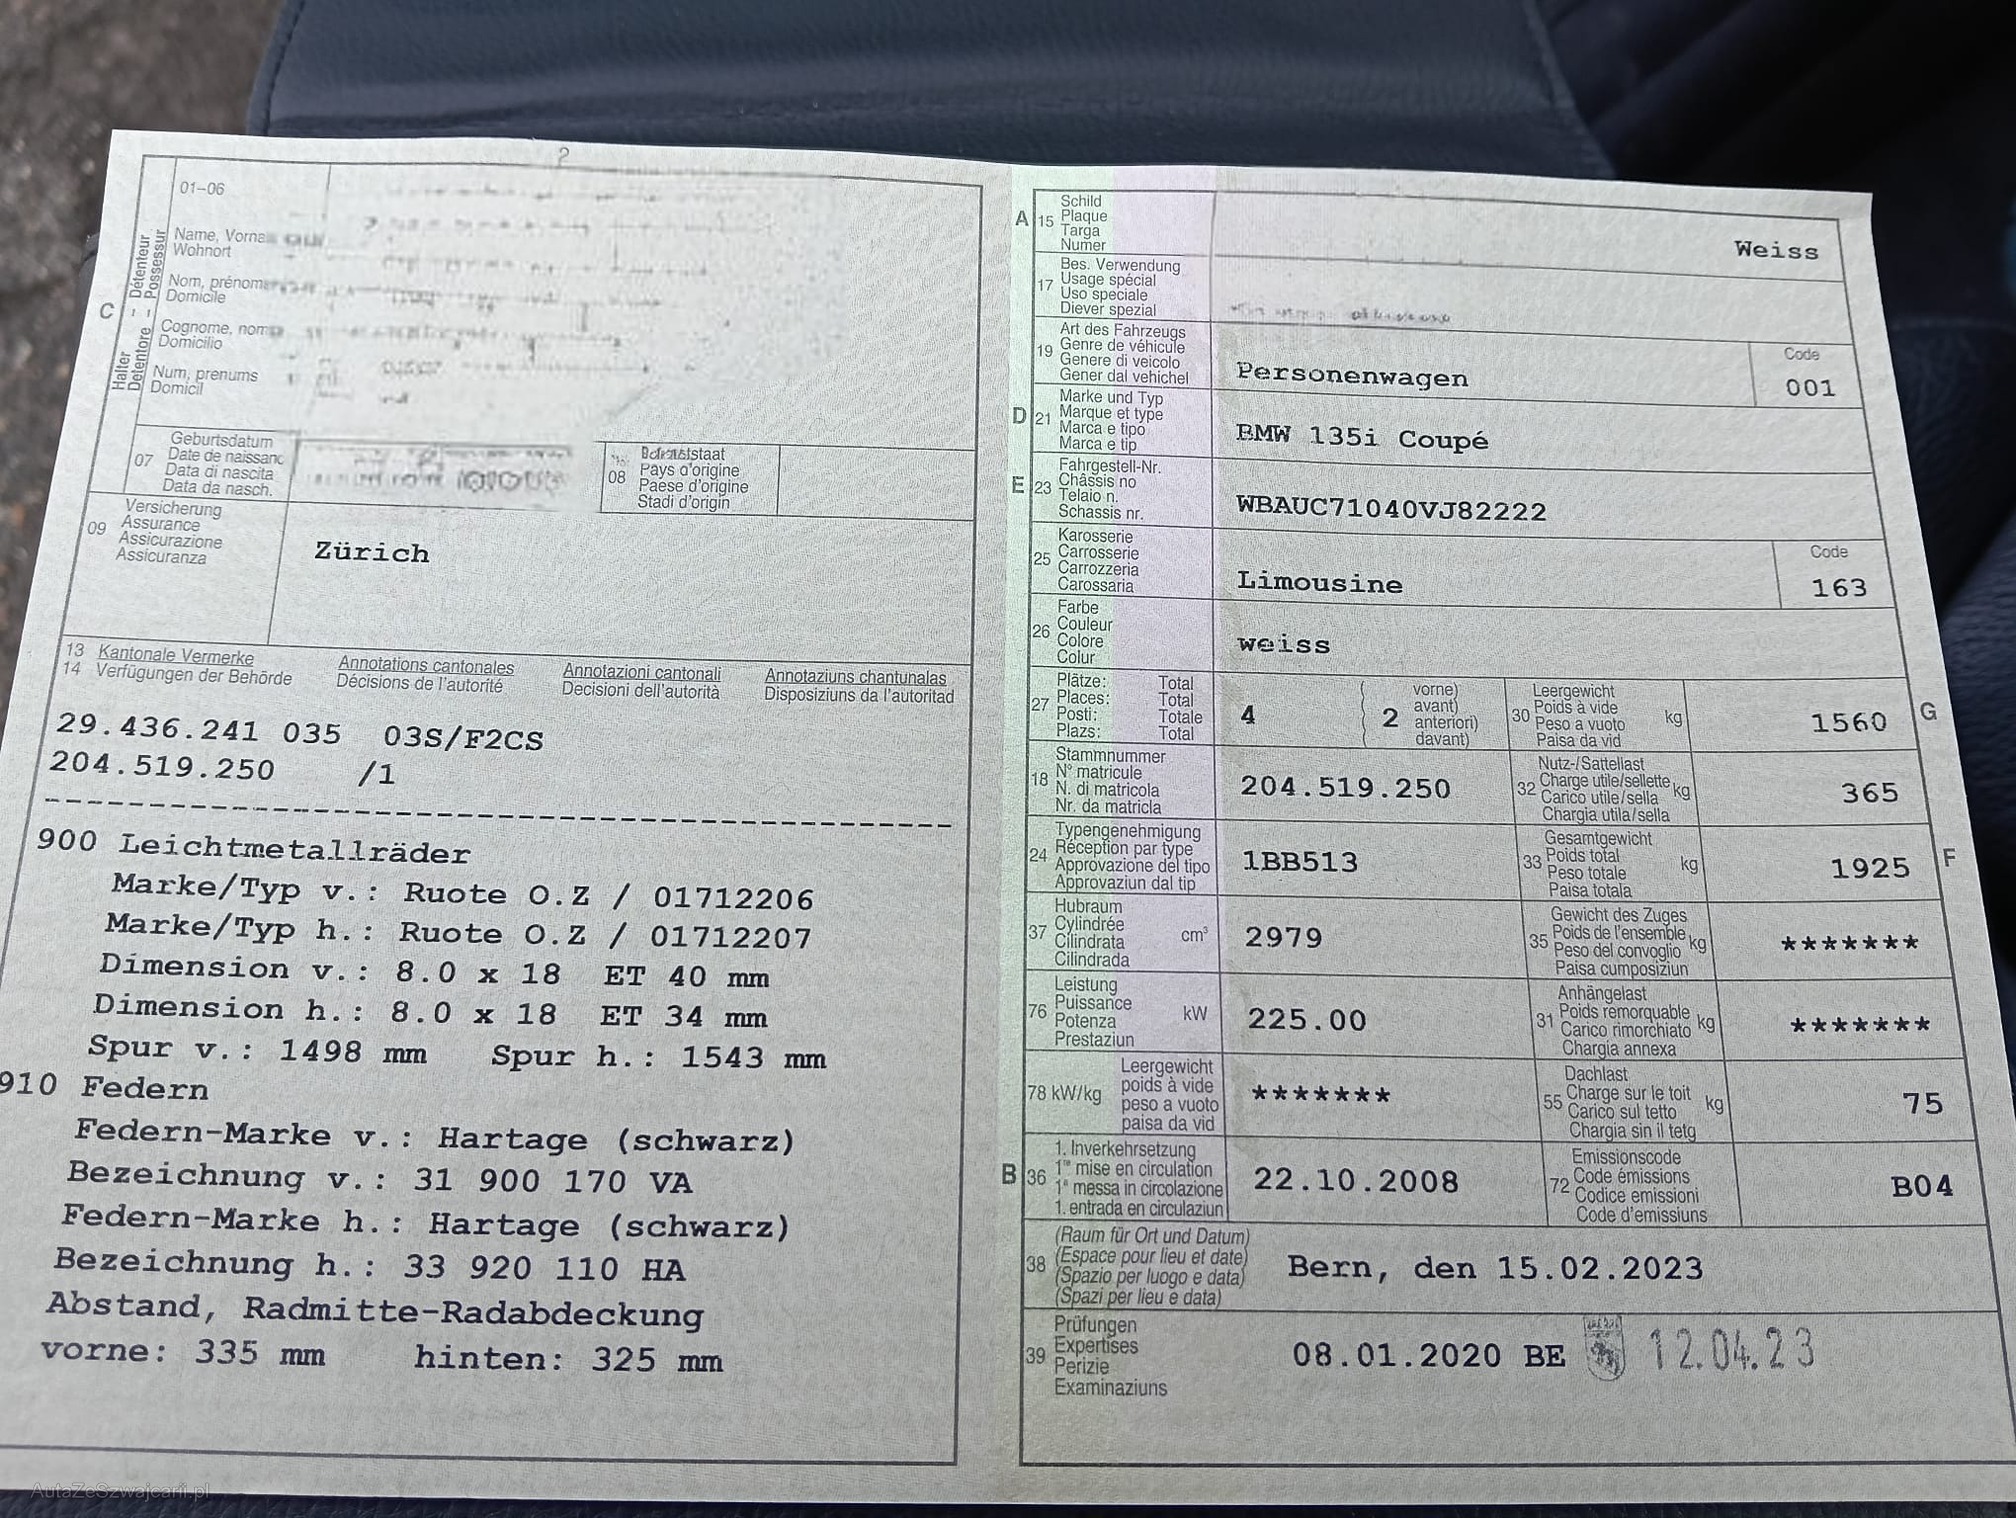 01–06
Name, Vorna
Wohnort
Nom, prénom
Domicile
Cognome, nom
Domicilio
Num, prenums
Domicil
C
Halter – Détenteur
Detentore – Possessur
07
Geburtsdatum
Date de naissanc
Data di nascita
Data da nasch.
08
Pays d'origine
Paese d'origine
Stadi d'origin
09
Versicherung
Assurance
Assicurazione
Assicuranza
Zürich
13 Kantonale Vermerke Annotations cantonales Annotazioni cantonali Annotaziuns chantunalas
14 Verfügungen der Behörde Décisions de l'autorité Decisioni dell'autorità Disposiziuns da l'autoritad
29.436.241 035 03S/F2CS
204.519.250 /1
--------------------------------------------------------
900 Leichtmetallräder
Marke/Typ v.: Ruote O.Z / 01712206
Marke/Typ h.: Ruote O.Z / 01712207
Dimension v.: 8.0 x 18 ET 40 mm
Dimension h.: 8.0 x 18 ET 34 mm
Spur v.: 1498 mm Spur h.: 1543 mm
910 Federn
Federn-Marke v.: Hartage (schwarz)
Bezeichnung v.: 31 900 170 VA
Federn-Marke h.: Hartage (schwarz)
Bezeichnung h.: 33 920 110 HA
Abstand, Radmitte-Radabdeckung
vorne: 335 mm hinten: 325 mm
A 15
Schild
Plaque
Targa
Numer
Weiss
17
Bes. Verwendung
Usage spécial
Uso speciale
Diever spezial
19
Art des Fahrzeugs
Genre de véhicule
Genere di veicolo
Gener dal vehichel
Personenwagen
Code
001
D 21
Marke und Typ
Marque et type
Marca e tipo
Marca e tip
BMW 135i Coupé
E 23
Fahrgestell-Nr.
Châssis no
Telaio n.
Schassis nr.
WBAUC71040VJ82222
25
Karosserie
Carrosserie
Carrozzeria
Carossaria
Limousine
Code
163
26
Farbe
Couleur
Colore
Colur
weiss
27
Plätze: Total
Places: Total
Posti: Totale
Plazs: Total
4
( 2 vorne)
( avant)
( anteriori)
( davant)
30
Leergewicht
Poids à vide
Peso a vuoto
Paisa da vid
kg
1560
G
18
Stammnummer
N° matricule
N. di matricola
Nr. da matricla
204.519.250
32
Nutz-/Sattellast
Charge utile/sellette
Carico utile/sella
Chargia utila/sella
kg
365
24
Typengenehmigung
Réception par type
Approvazione del tipo
Approvaziun dal tip
1BB513
33
Gesamtgewicht
Poids total
Peso totale
Paisa totala
kg
1925
F
37
Hubraum
Cylindrée
Cilindrata
Cilindrada
cm³
2979
35
Gewicht des Zuges
Poids de l'ensemble
Peso del convoglio
Paisa cumposiziun
kg
*******
76
Leistung
Puissance
Potenza
Prestaziun
kW
225.00
31
Anhängelast
Poids remorquable
Carico rimorchiato
Chargia annexa
kg
*******
78 kW/kg
Leergewicht
poids à vide
peso a vuoto
paisa da vid
*******
55
Dachlast
Charge sur le toit
Carico sul tetto
Chargia sin il tetg
kg
75
B 36
1. Inverkehrsetzung
1re mise en circulation
1a messa in circolazione
1. entrada en circulaziun
22.10.2008
72
Emissionscode
Code émissions
Codice emissioni
Code d'emissiuns
B04
38
(Raum für Ort und Datum)
(Espace pour lieu et date)
(Spazio per luogo e data)
(Spazi per lieu e data)
Bern, den 15.02.2023
39
Prüfungen
Expertises
Perizie
Examinaziuns
08.01.2020 BE 12.04.23
AutaZeSzwajcarii.pl